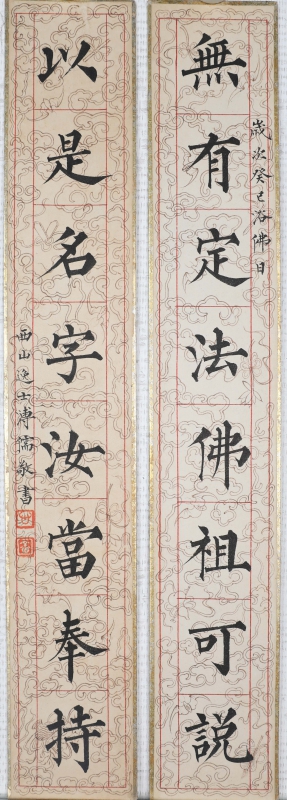 無有定法佛祖可説
歲次癸巳浴佛日
以是名字汝當奉持
西山逸士溥儒敬書